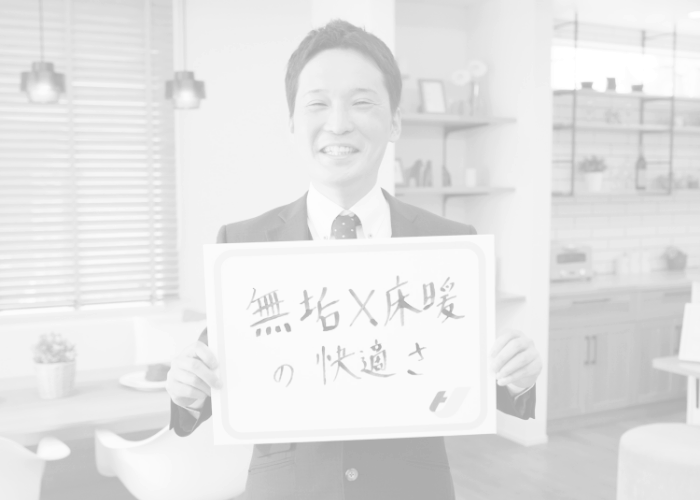 無垢×床暖
の快適さ